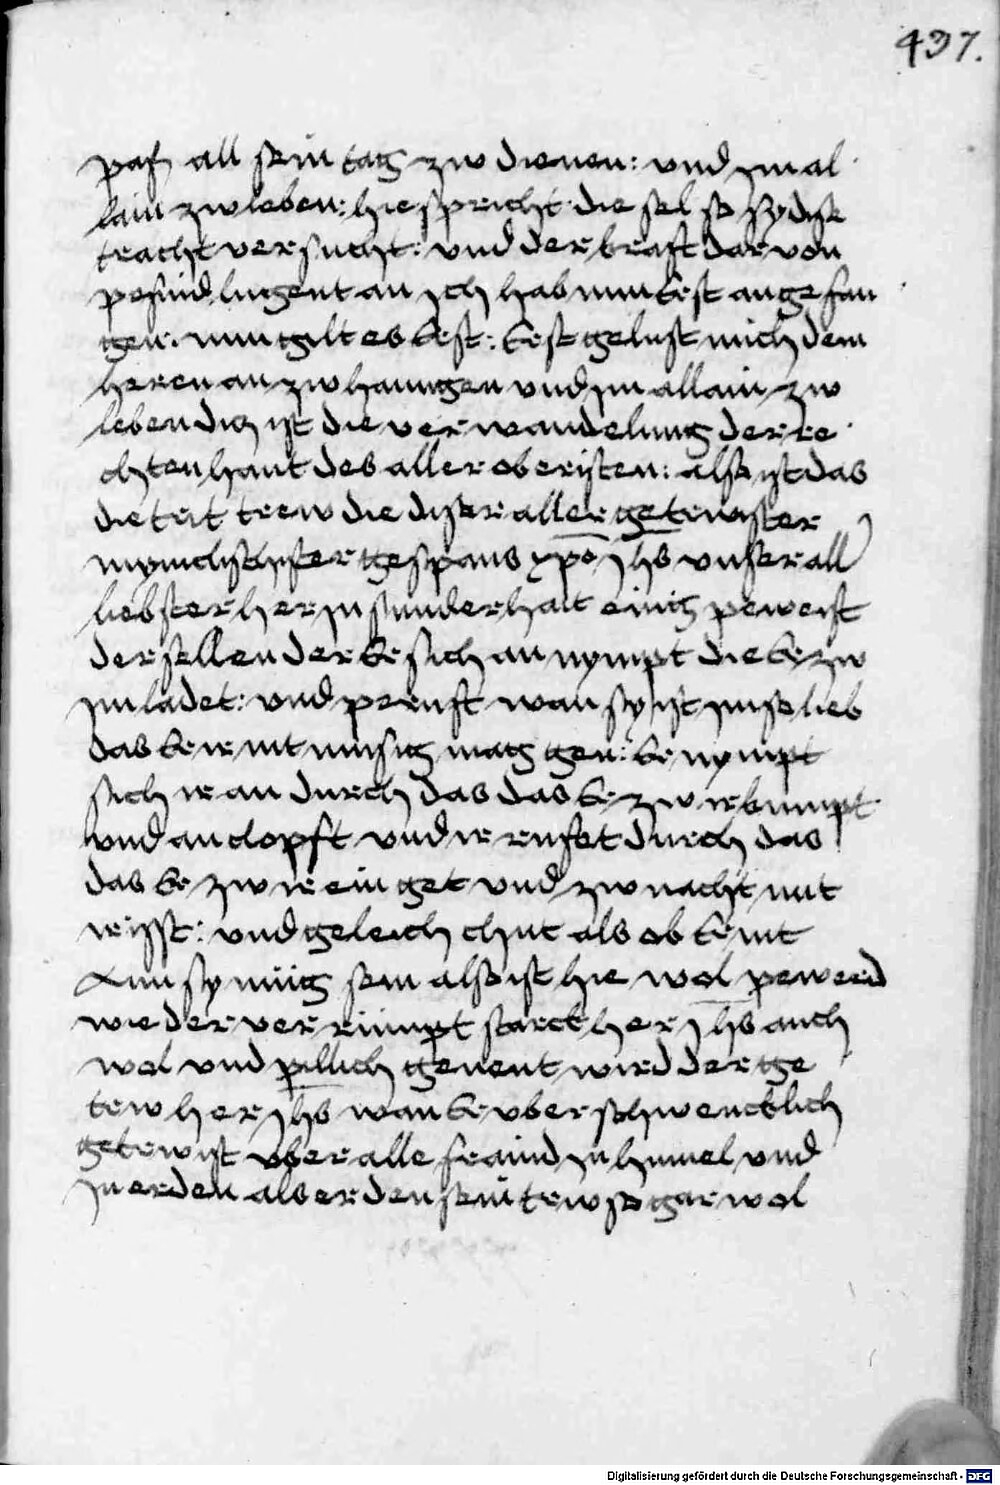 437.
pas all sein tag zw dienen: und im al
lain zw leben: hie spricht die sel so sy dise
tracht versucht: und der kraft dar von
pefind lugent an ich hab nun Erst angefan
gen: nun gilt es Erst: Erst gelust mich dem
heren an zw hanngen und im allain zw
leben diz ist die verwandelung der re
chten hant des aller obristen: also ist das
die trit trew die diser aller getrewster
gespans xpo ihs unser all
liebster her in sunderhait einig peweist
der sellen der Er sich an nympt die Er zw
im ladet: und prueft wan sy ist im so lieb
das Er ir nit müsig mag gen: Er nympt
sich ir an durch das das Er zw ir kumpt
und anclopft und ir rufet durch das
das Er zw ir ein get und zw nacht mit
ir isst: und geleich thut als ob Er nit
an sy müg sein also ist hie wol pewerd
wie der verrümpt starck her ihs auch
wol und pillich genent wird der ge
trew her ihs wan Er uberschwencklich
getrew ist uber alle fraind in himel und
in erden als er den sein trew so gar wol
Digitalisierung gefördert durch die Deutsche Forschungsgemeinschaft - DFG